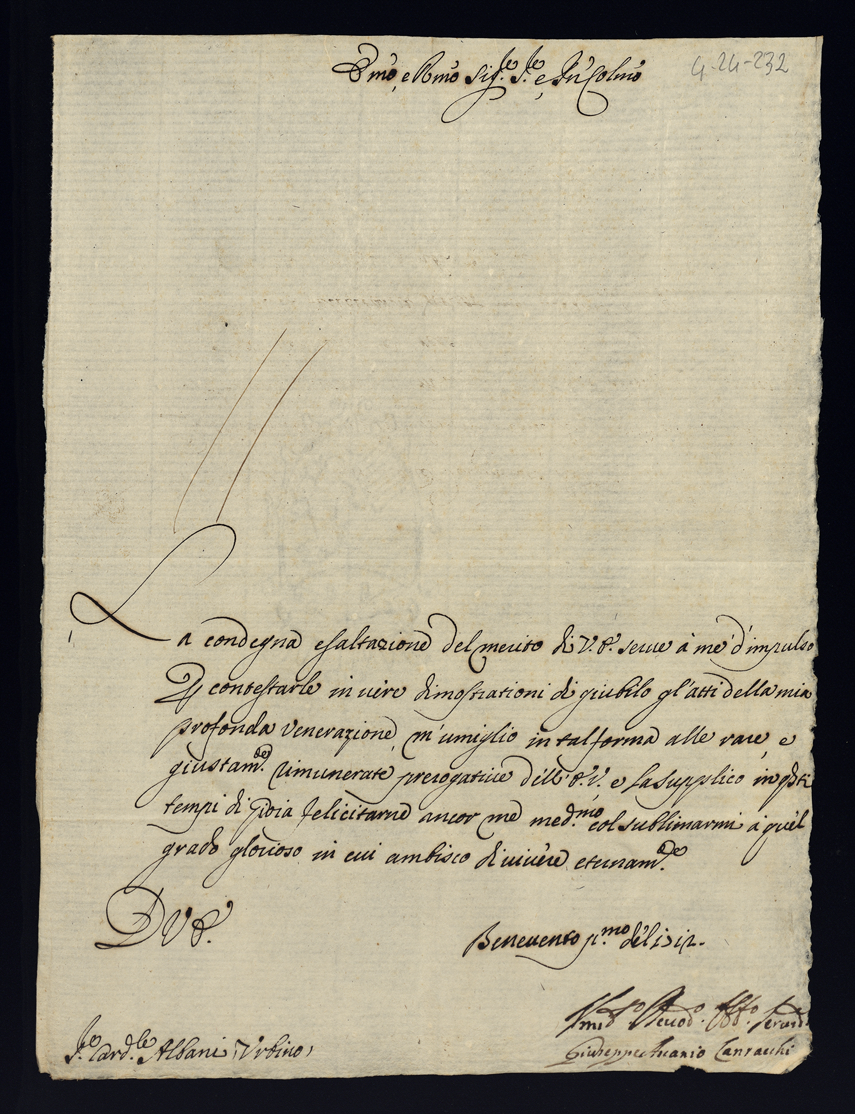 Em̃o, e Rm̃o Sig.re S.re e Pr̃n Colm̃o
4-24-232
La condegna esaltazione del merito di V.E. serue à me d'impulso
contestarle in uere dimostrationi di giubilo gl'atti della mia
profonda venerazione, m'umiglio in tal forma alle rare, e
giustam.te rimunerate prerogatiue dell'E.V. e la supplico in q̃sti
tempi di gioia felicitarne ancor me med.mo col sublimarmi à quel
grado glorioso in cui ambisco di uiuere eternam.te
D V E.
Beneuento p.mo del
Vm̃o Deuo.o Obb.o Seru
S.r Card.le Albani Vrbino,
Giuseppe